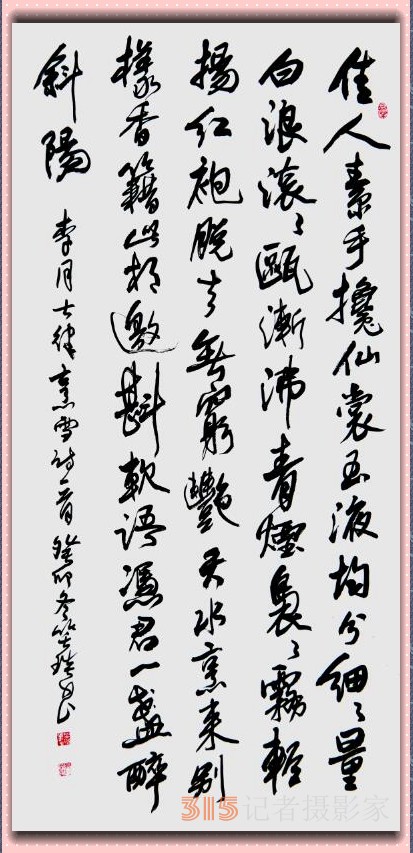 佳人素手攙仙裳玉液均分細〻量
白浪滾〻甌漸沸青煙裊〻霧輕
揚紅袍脫去無窮艷天水烹來別
樣香籍此相邀斟軟語憑君一盞醉
斜陽
李月七律烹雪詩一首癸卯冬
315记者摄影家